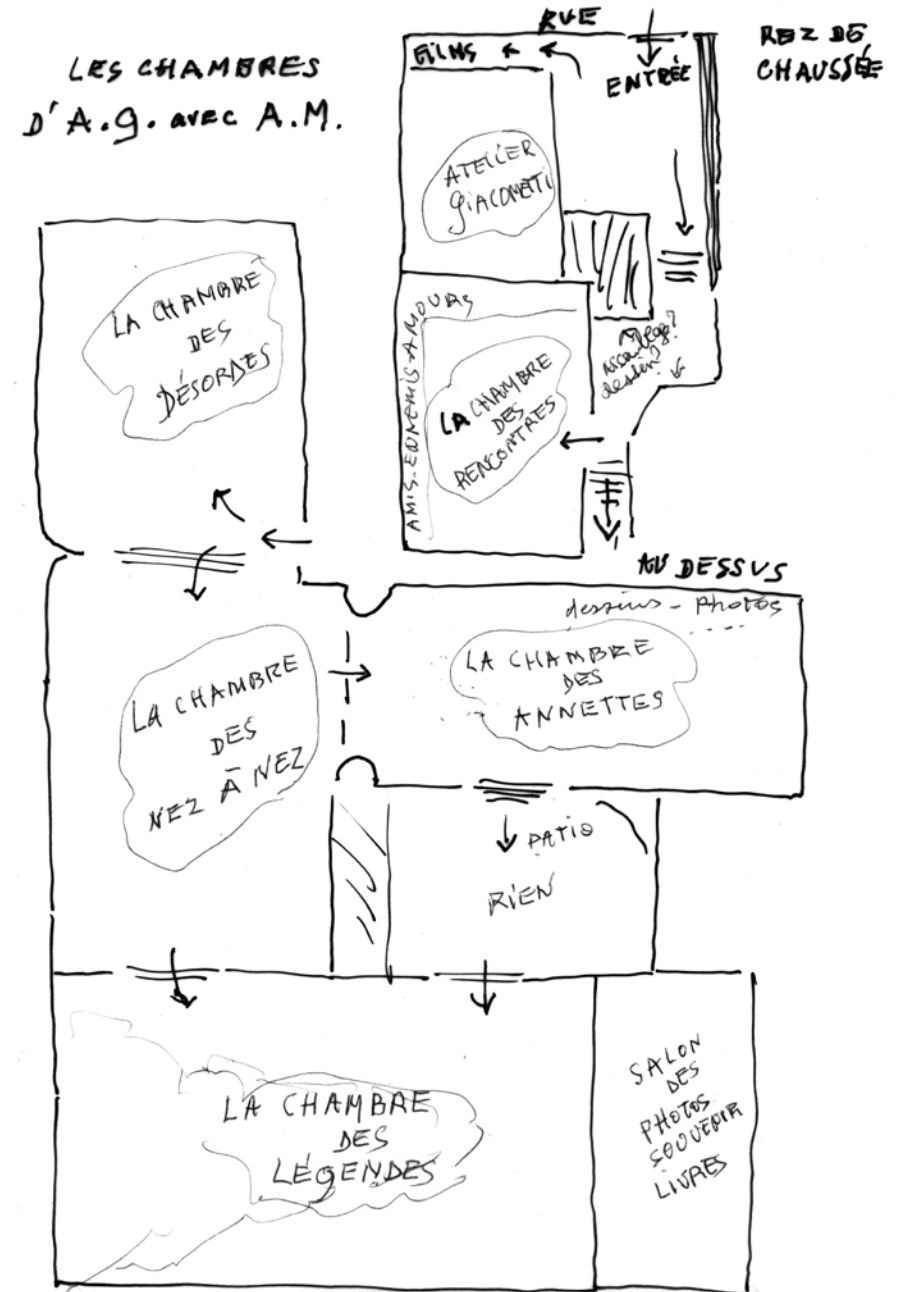 LES CHAMBRES
D'A.G. avec A.M.
RUE
REZ DE
CHAUSSÉE
FILMS
ENTRÉE
ATELIER
GIACOMETTI
AMIS-ENNEMIS-AMOURS
LA CHAMBRE
DES
RENCONTRES
dessin?
LA CHAMBRE
DES
DÉSORDES
AU DESSUS
dessins - Photos
LA CHAMBRE
DES
ANNETTES
LA CHAMBRE
DES
NEZ À NEZ
PATIO
RIEN
LA CHAMBRE
DES
LÉGENDES
SALON
DES
PHOTOS
SOUVENIR
LIVRES